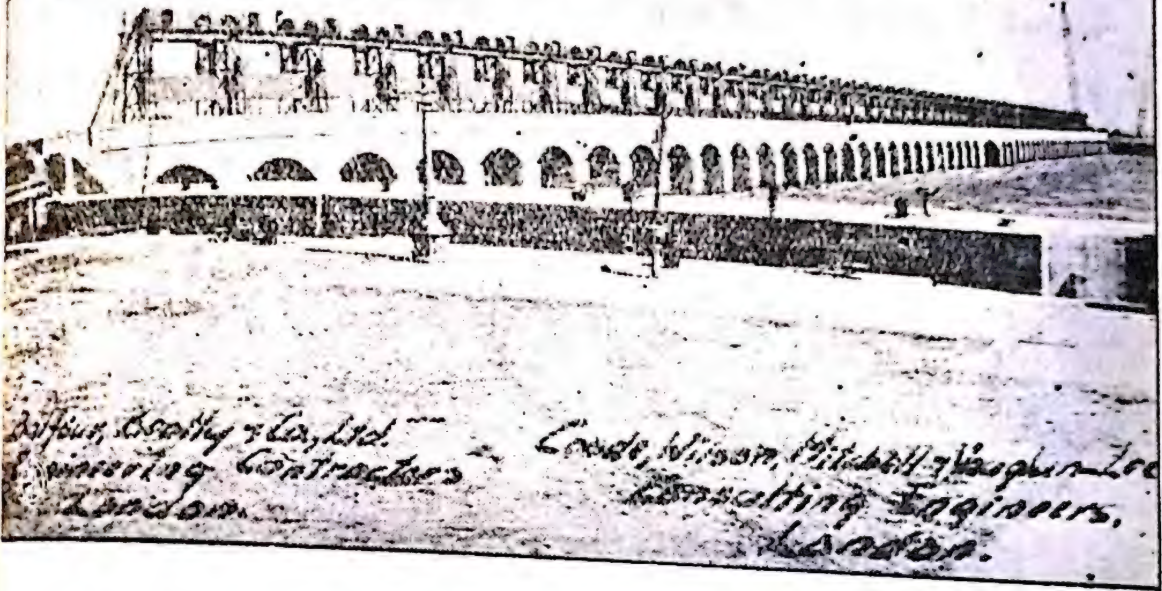 Balfour, Beatty & Co, Ltd.
Engineering Contractors
London.
Coode, Wilson, Mitchell & Vaughan-Lee
Consulting Engineers,
London.